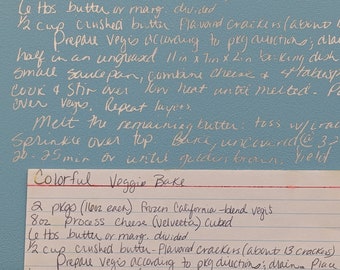 6 tbs butter or marg. divided
1/2 cup crushed butter flavored crackers (about 1
Prepare vegis according to pkg directions; drain
half in an ungreased 11 in x 7 in x 2 in baking dish
small saucepan, combine cheese &
cook & stir over low heat until melted. Po
over vegis, Repeat layers
Melt the remaining butter: toss w/ crac
Sprinkle over top Bake, uncovered @ 3
20-25 min or until golden brown. Yield
Colorful Veggie Bake
2 pkgs (16oz each) frozen California-blend vegis
8oz process cheese (Velveeta) cubed
6 tbs butter or marg. divided
1/2 cup crushed butter-flavored crackers (about 13 crackers)
Prepare vegis according to pkg directions, drain. Place